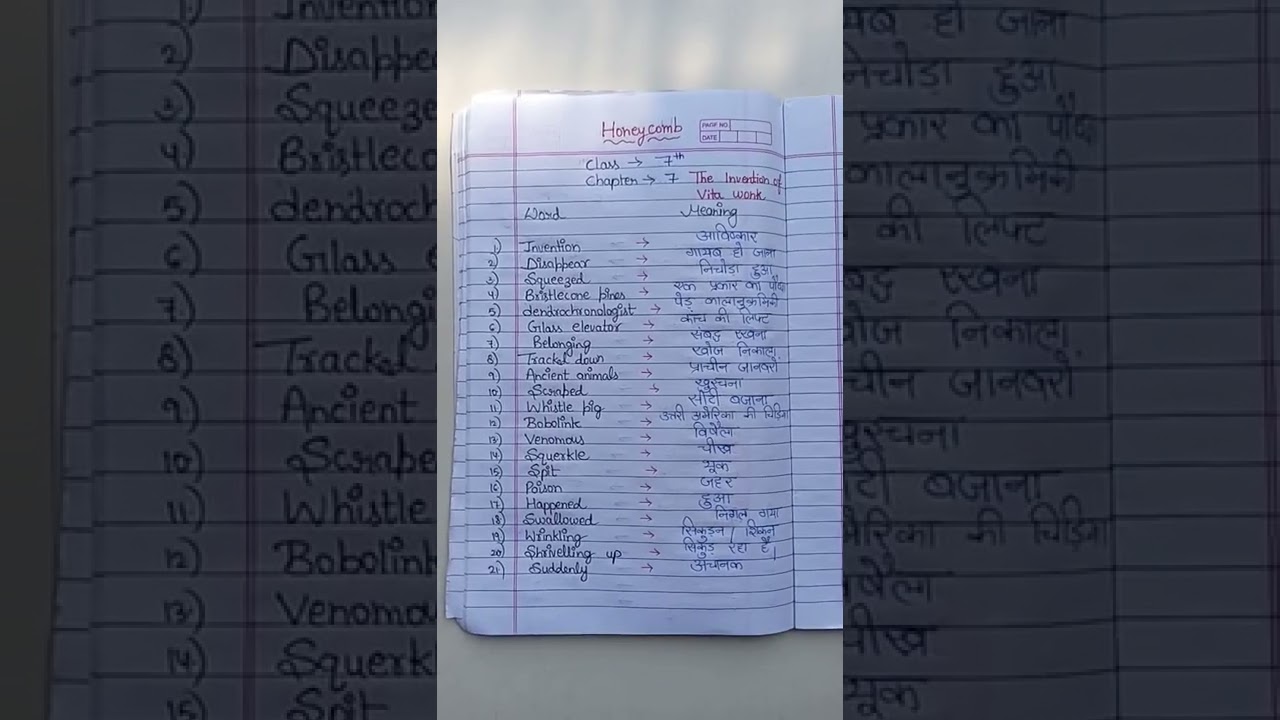 Honeycomb
PAGE NO.
DATE
Class → 7th
Chapter → 7 The Invention of
Vita wonk
Word Meaning
1) Invention → आविष्कार
2) Disappear → गायब हो जाना
3) Squeezed → निचोडा हुआ
4) Bristlecone pines → एक प्रकार का पौधा
5) dendrochronologist → पेड़ कालानुक्रमिकी
6) Glass elevator → कांच की लिफ्ट
7) Belonging → संबद्ध रखना
8) Tracked down → खोज निकाला
9) Ancient animals → प्राचीन जानवरों
10) Scraped → खुरचना
11) Whistle pig → सीटी बजाना
12) Bobolink → उत्तरी अमेरिका की चिड़िया
13) Venomous → विषैला
14) Squerkle → चीख
15) Spit → थूक
16) Poison → जहर
17) Happened → हुआ
18) Swallowed → निगल गया
19) Wrinkling → सिकुडन / शिकन
20) Shrivelling up → सिकुड़ रहा है।
21) Suddenly → अचानक